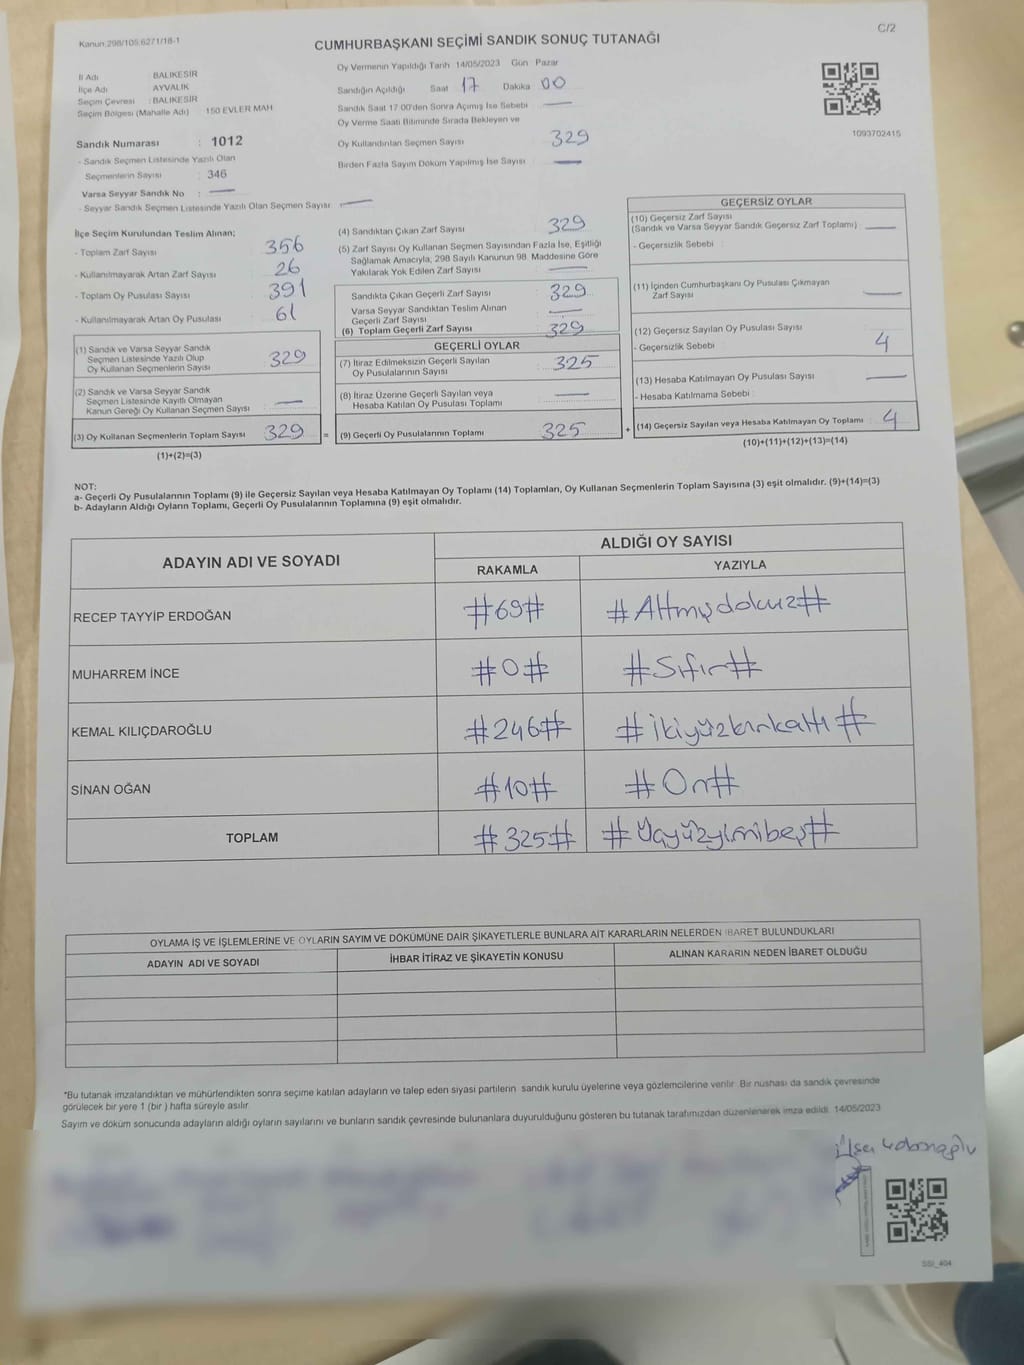 Kanun:298/105.6271/18-1
C/2
CUMHURBAŞKANI SEÇİMİ SANDIK SONUÇ TUTANAĞI
İl Adı BALIKESİR
İlçe Adı AYVALIK
Seçim Çevresi : BALIKESİR
Seçim Bölgesi (Mahalle Adı) 150 EVLER MAH
Sandık Numarası : 1012
- Sandık Seçmen Listesinde Yazılı Olan
Seçmenlerin Sayısı : 346
Varsa Seyyar Sandık No : —
- Seyyar Sandık Seçmen Listesinde Yazılı Olan Seçmen Sayısı : —
Oy Vermenin Yapıldığı Tarih 14/05/2023 Gün Pazar
Sandığın Açıldığı Saat 17 Dakika 00
Sandık Saat 17:00'den Sonra Açımış İse Sebebi —
Oy Verme Saati Bitiminde Sırada Bekleyen ve
Oy Kullandırılan Seçmen Sayısı 329
Birden Fazla Sayım Döküm Yapılmış İse Sayısı —
1093702415
İlçe Seçim Kurulundan Teslim Alınan;
- Toplam Zarf Sayısı 356
- Kullanılmayarak Artan Zarf Sayısı 26
- Toplam Oy Pusulası Sayısı 391
- Kullanılmayarak Artan Oy Pusulası 61
(1) Sandık ve Varsa Seyyar Sandık
Seçmen Listesinde Yazılı Olup
Oy Kullanan Seçmenlerin Sayısı 329
(2) Sandık ve Varsa Seyyar Sandık
Seçmen Listesinde Kayıtlı Olmayan
Kanun Gereği Oy Kullanan Seçmen Sayısı —
(3) Oy Kullanan Seçmenlerin Toplam Sayısı 329 =
(1)+(2)=(3)
(4) Sandıktan Çıkan Zarf Sayısı 329
(5) Zarf Sayısı Oy Kullanan Seçmen Sayısından Fazla İse, Eşitliği
Sağlamak Amacıyla, 298 Sayılı Kanunun 98. Maddesine Göre
Yakılarak Yok Edilen Zarf Sayısı —
Sandıkta Çıkan Geçerli Zarf Sayısı 329
Varsa Seyyar Sandıktan Teslim Alınan
Geçerli Zarf Sayısı —
(6) Toplam Geçerli Zarf Sayısı 329
GEÇERLİ OYLAR
(7) İtiraz Edilmeksizin Geçerli Sayılan
Oy Pusulalarının Sayısı 325
(8) İtiraz Üzerine Geçerli Sayılan veya
Hesaba Katılan Oy Pusulası Toplamı —
(9) Geçerli Oy Pusulalarının Toplamı 325 +
GEÇERSİZ OYLAR
(10) Geçersiz Zarf Sayısı
(Sandık ve Varsa Seyyar Sandık Geçersiz Zarf Toplamı) —
- Geçersizlik Sebebi :
(11) İçinden Cumhurbaşkanı Oy Pusulası Çıkmayan
Zarf Sayısı —
(12) Geçersiz Sayılan Oy Pusulası Sayısı
- Geçersizlik Sebebi : 4
(13) Hesaba Katılmayan Oy Pusulası Sayısı —
- Hesaba Katılmama Sebebi :
(14) Geçersiz Sayılan veya Hesaba Katılmayan Oy Toplamı : 4
(10)+(11)+(12)+(13)=(14)
NOT:
a- Geçerli Oy Pusulalarının Toplamı (9) ile Geçersiz Sayılan veya Hesaba Katılmayan Oy Toplamı (14) Toplamları, Oy Kullanan Seçmenlerin Toplam Sayısına (3) eşit olmalıdır. (9)+(14)=(3)
b- Adayların Aldığı Oyların Toplamı, Geçerli Oy Pusulalarının Toplamına (9) eşit olmalıdır.
ADAYIN ADI VE SOYADI
ALDIĞI OY SAYISI
RAKAMLA YAZIYLA
RECEP TAYYİP ERDOĞAN #69# #Altmışdokuz#
MUHARREM İNCE #0# #Sıfır#
KEMAL KILIÇDAROĞLU #246# #İkiyüzkırkaltı#
SİNAN OĞAN #10# #On#
TOPLAM #325# #Üçyüzyirmibeş#
OYLAMA İŞ VE İŞLEMLERİNE VE OYLARIN SAYIM VE DÖKÜMÜNE DAİR ŞİKAYETLERLE BUNLARA AİT KARARLARIN NELERDEN İBARET BULUNDUKLARI
ADAYIN ADI VE SOYADI İHBAR İTİRAZ VE ŞİKAYETİN KONUSU ALINAN KARARIN NEDEN İBARET OLDUĞU
*Bu tutanak imzalandıktan ve mühürlendikten sonra seçime katılan adayların ve talep eden siyasi partilerin sandık kurulu üyelerine veya gözlemcilerine verilir. Bir nüshası da sandık çevresinde
görülecek bir yere 1 (bir ) hafta süreyle asılır.
Sayım ve döküm sonucunda adayların aldığı oyların sayılarını ve bunların sandık çevresinde bulunanlara duyurulduğunu gösteren bu tutanak tarafımızdan düzenlenerek imza edildi. 14/05/2023
SSI_404